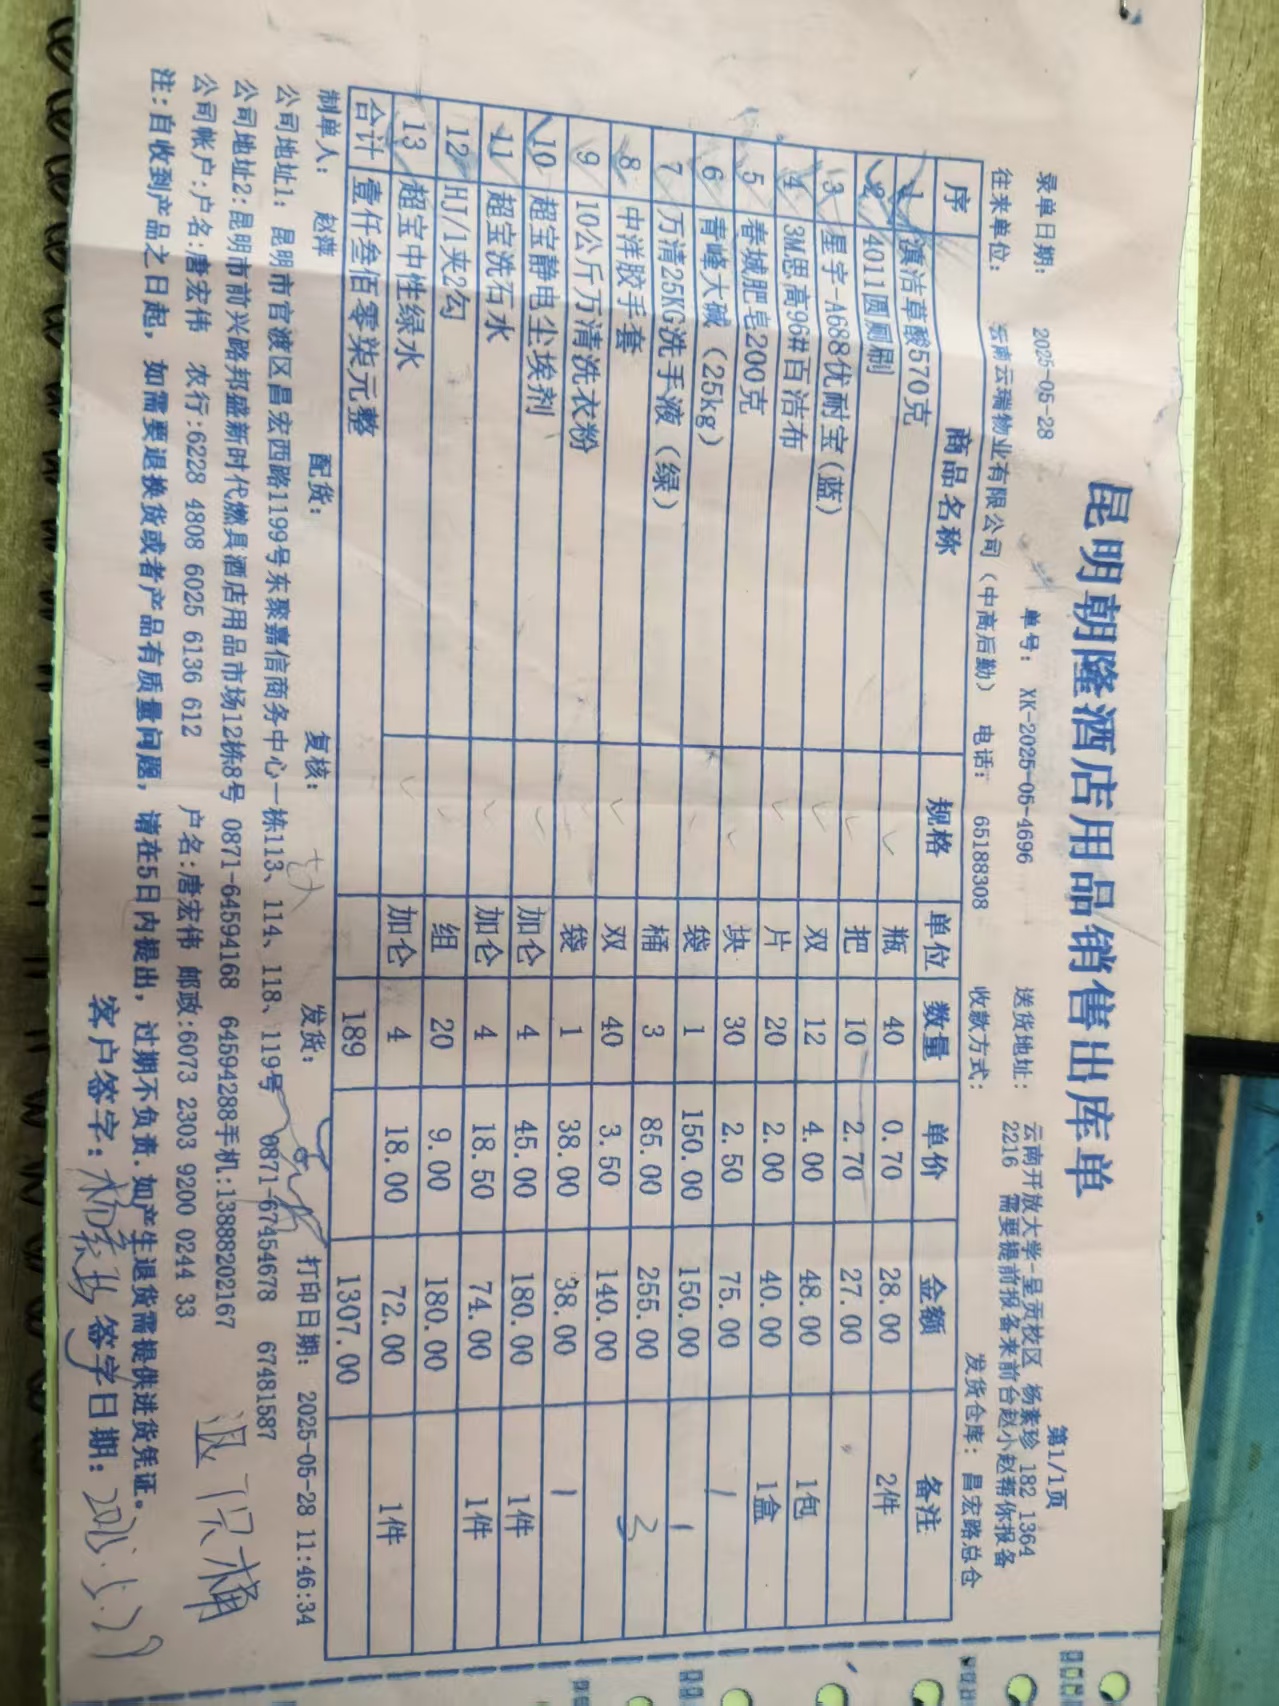 昆明朝隆酒店用品销售出库单
第1/1页
录单日期: 2025-05-28 单号: XK-2025-05-4696 送货地址: 云南开放大学-呈贡校区 杨素珍 182 1364
2216 需要提前报备来前台赵小赵帮你报备
往来单位: 云南云瑞物业有限公司(中高后勤) 电话: 65188308 收款方式: 发货仓库: 昌宏路总仓
序 商品名称 规格 单位 数量 单价 金额 备注
1 滇洁草酸570克 瓶 40 0.70 28.00 2件
2 4011圆厕刷 把 10 2.70 27.00
3 星宇-A688优耐宝(蓝) 双 12 4.00 48.00 1包
4 3M思高96#百洁布 片 20 2.00 40.00 1盒
5 春城肥皂200克 块 30 2.50 75.00 1
6 青峰大碱(25kg) 袋 1 150.00 150.00 1
7 万清25KG洗手液(绿) 桶 3 85.00 255.00 3
8 中洋胶手套 双 40 3.50 140.00
9 10公斤万清洗衣粉 袋 1 38.00 38.00 1
10 超宝静电尘埃剂 加仑 4 45.00 180.00 1件
11 超宝洗石水 加仑 4 18.50 74.00 1件
12 HJ/1夹2勾 组 20 9.00 180.00
13 超宝中性绿水 加仑 4 18.00 72.00 1件
合计 壹仟叁佰零柒元整 189 1307.00
制单人: 赵萍 配货: 复核: 发货: 打印日期: 2025-05-28 11:46:34
公司地址1: 昆明市官渡区昌宏西路1199号东聚嘉信商务中心一栋113、114、118、119号 0871-67454678 67481587
公司地址2:昆明市前兴路邦盛新时代燃具酒店用品市场12栋8号 0871-64594168 64594288手机:13888202167
公司帐户:户名:唐宏伟 农行:6228 4808 6025 6136 612 户名:唐宏伟 邮政:6073 2303 9200 0244 33
注:自收到产品之日起,如需要退换货或者产品有质量问题,请在5日内提出,过期不负责.如产生退货需提供进货凭证。
客户签字: 签字日期: 2025.5.29